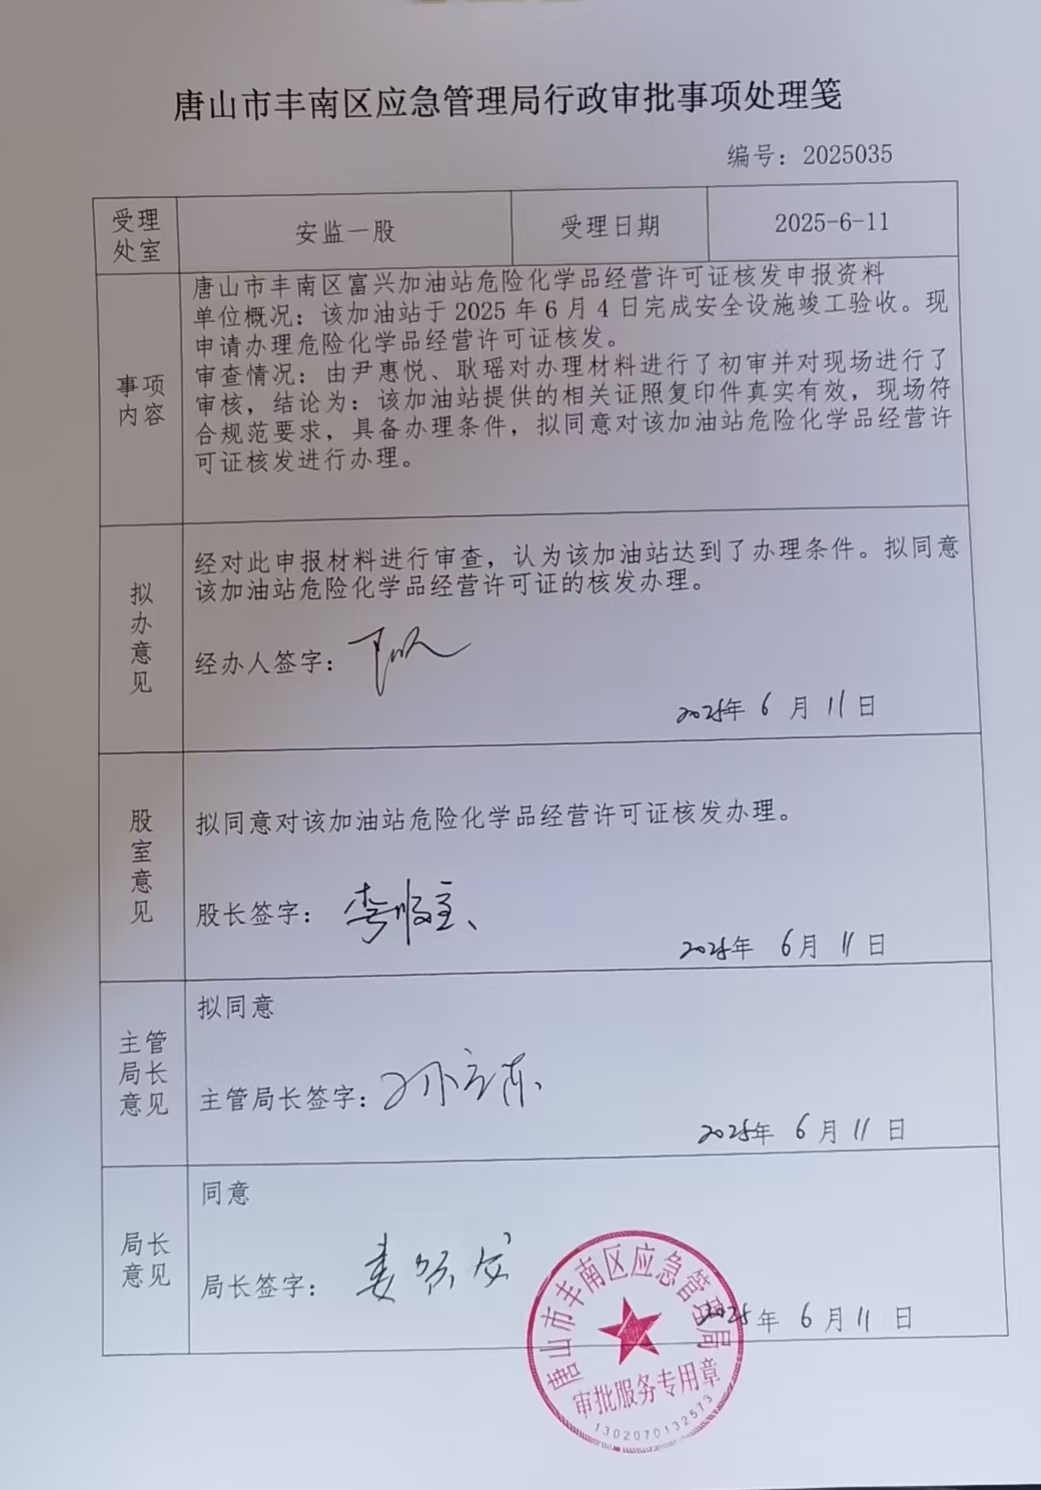 唐山市丰南区应急管理局行政审批事项处理笺
编号：2025035
受理
处室
安监一股
受理日期
2025-6-11
事项
内容
唐山市丰南区富兴加油站危险化学品经营许可证核发申报资料
单位概况：该加油站于 2025 年 6 月 4 日完成安全设施竣工验收。现
申请办理危险化学品经营许可证核发。
审查情况：由尹惠悦、耿瑶对办理材料进行了初审并对现场进行了
审核，结论为：该加油站提供的相关证照复印件真实有效，现场符
合规范要求，具备办理条件，拟同意对该加油站危险化学品经营许
可证核发进行办理。
拟
办
意
见
经对此申报材料进行审查，认为该加油站达到了办理条件。拟同意
该加油站危险化学品经营许可证的核发办理。
经办人签字：
2025年 6 月 11 日
股
室
意
见
拟同意对该加油站危险化学品经营许可证核发办理。
股长签字：
2025年 6月 11日
主管
局长
意见
拟同意
主管局长签字：
2025年 6月 11 日
局长
意见
同意
局长签字：
2025年 6月 11 日
唐山市丰南区应急管理局
审批服务专用章
1302070132573